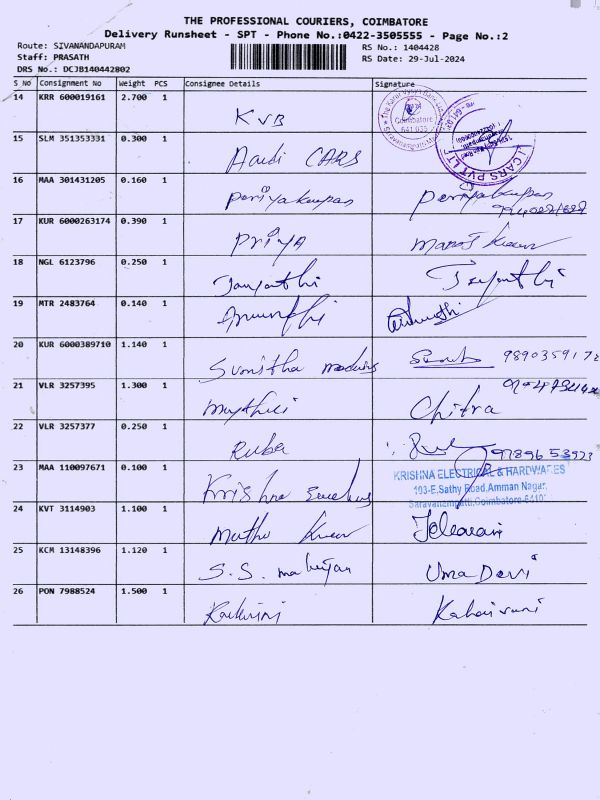 THE PROFESSIONAL COURIERS, COIMBATORE
Delivery Runsheet - SPT - Phone No.:0422-3505555 - Page No.:2
Route: SIVANANDAPURAM
Staff: PRASATH
DRS No.: DCJB140442802
RS No.: 1404428
RS Date: 29-Jul-2024
S No Consignment No Weight PCS Consignee Details Signature
14 KRR 600019161 2.700 1 KVB
Coimbatore
641 035
CARS PVT LT
15 SLM 351353331 0.300 1 Aadi CARS
16 MAA 301431205 0.160 1 Periyakaupas Periyakaupas
17 KUR 6000263174 0.390 1 PRiYA Manoj Kumar
18 NGL 6123796 0.250 1 Jayanthi Jayanthi
19 MTR 2483764 0.140 1
20 KUR 6000389710 1.140 1 Sunitha
21 VLR 3257395 1.300 1 Mythili Chitra
22 VLR 3257377 0.250 1 Ruba
23 MAA 110097671 0.100 1 Krishna
KRISHNA ELECTRICAL & HARDWARES
193-E, Sathy Road, Amman Nagar,
Saravanampatti, Coimbatore-
24 KVT 3114903 1.100 1 Muthu Kumar
25 KCM 13148396 1.120 1 S.S. Uma Devi
26 PON 7988524 1.500 1